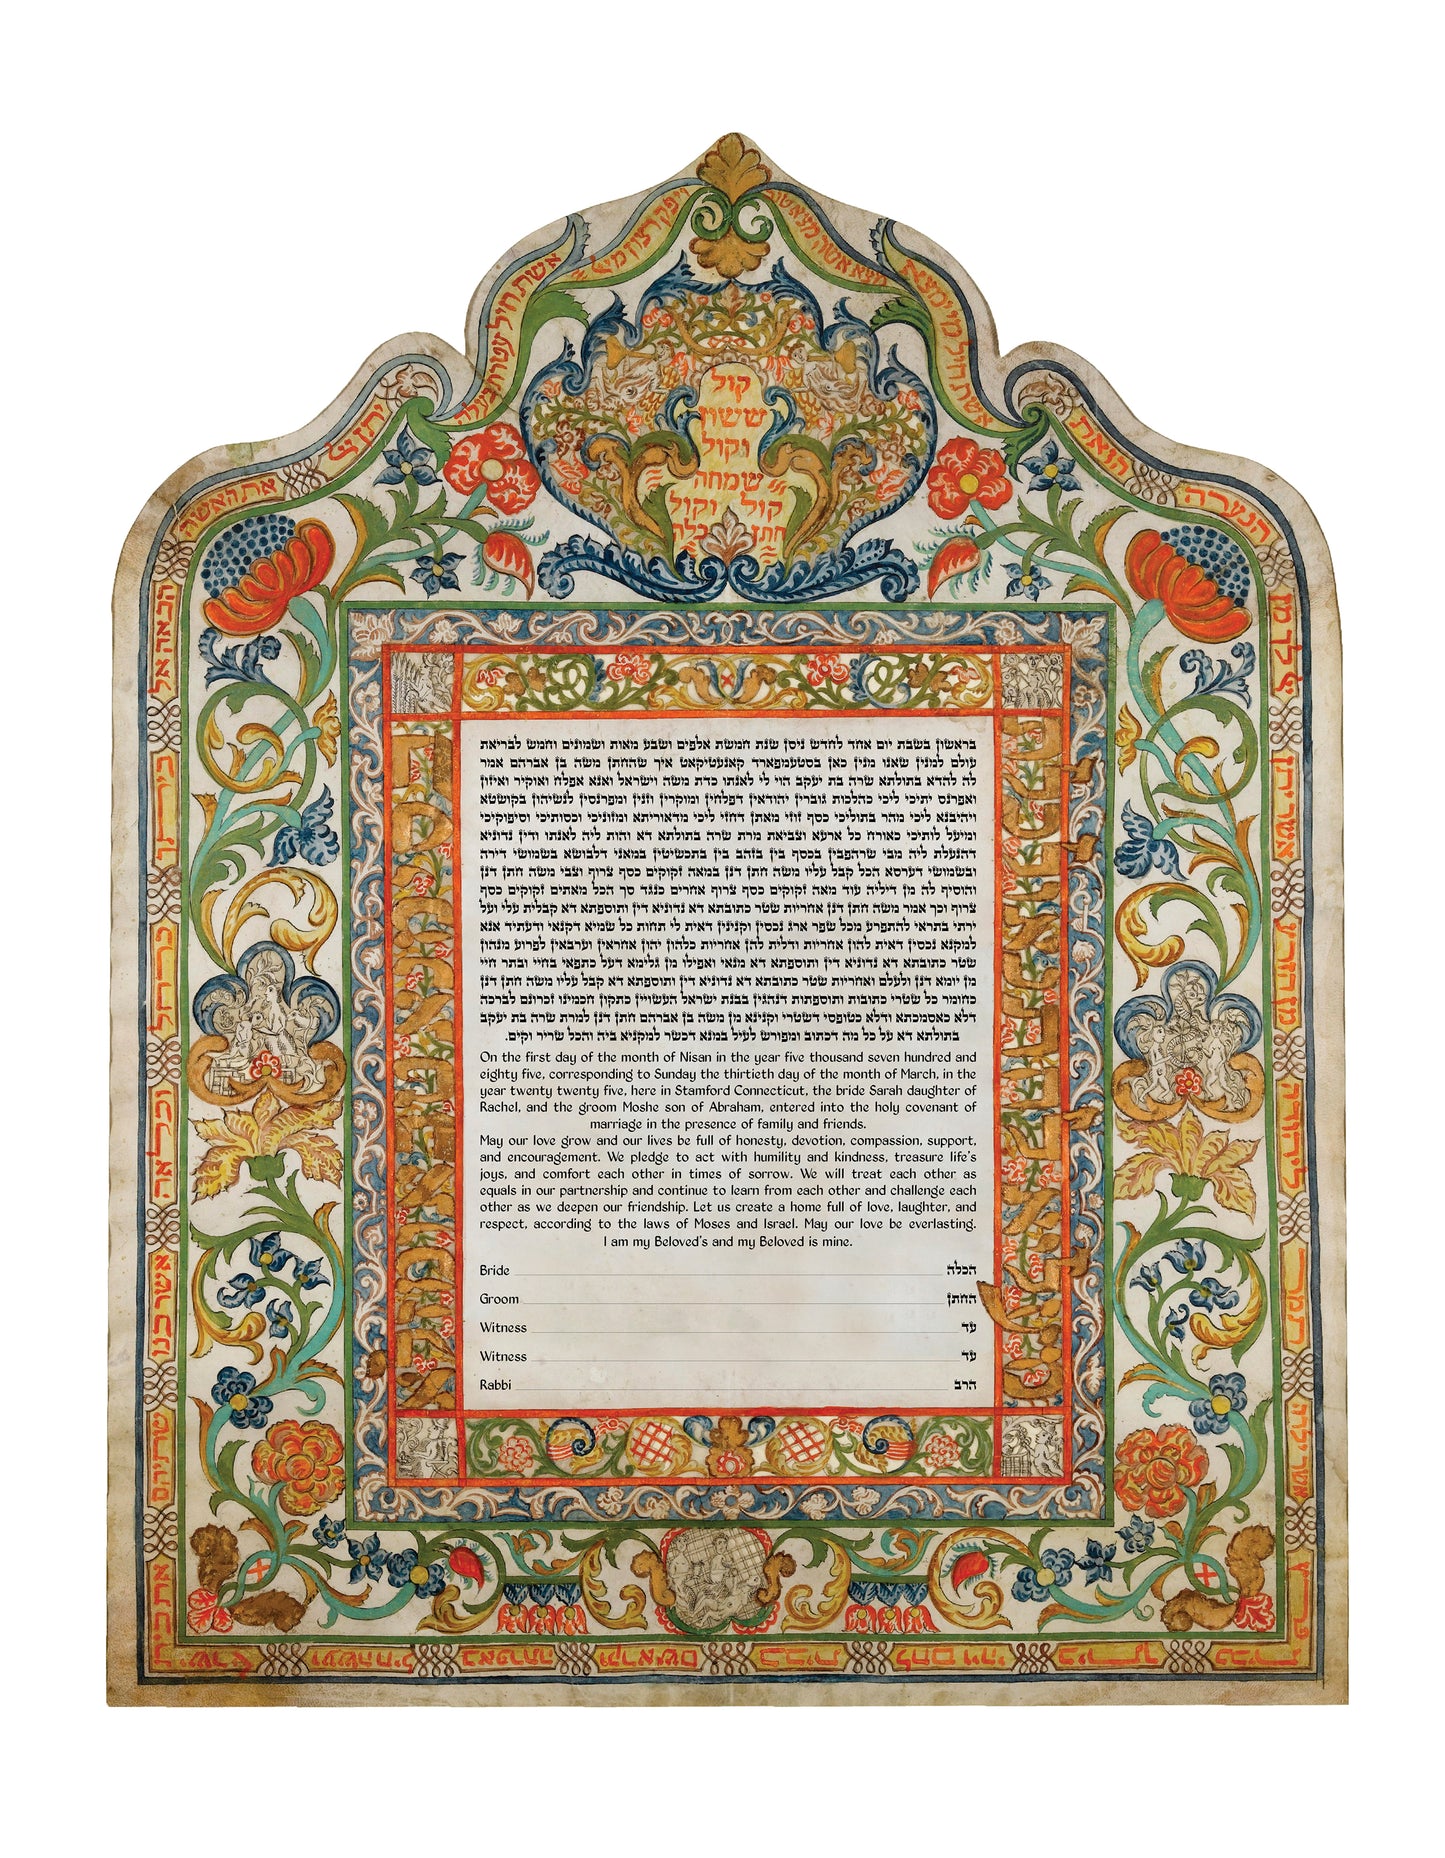 קול
ששון
וקול
שמחה
קול וקול
חתן כלה
מי ימצא
אשת חיל
הנערה
הזאת
יתן
את האשה
הבאה אל
ביתך
כרחל
וכלאה
אשר בנו
שתיהם
את בית
ישראל
ועשה חיל
באפרתה
וקרא שם
בבית
לחם ויהי
ביתך
כבית
פרץ
אשר ילדה
תמר
ליהודה
מן הזרע
אשר יתן
אשת חיל עטרת בעלה
מצא אשה מצא טוב
ויפק רצון
בראשון בשבת יום אחד לחדש ניסן שנת חמשת אלפים ושבע מאות ושמונים וחמש לבריאת
עולם למנין שאנו מנין כאן בסטעמפארד קאנעטיקאט איך שהחתן משה בן אברהם אמר
לה להדא בתולתא שרה בת יעקב הוי לי לאנתו כדת משה וישראל ואנא אפלח ואוקיר ואיזון
ואפרנס יתיכי ליכי כהלכות גוברין יהודאין דפלחין ומוקרין וזנין ומפרנסין לנשיהון בקושטא
ויהיבנא ליכי מהר בתוליכי כסף זוזי מאתן דחזי ליכי מדאוריתא ומזוניכי וכסותיכי וסיפוקיכי
ומיעל לותיכי כאורח כל ארעא וצביאת מרת שרה בתולתא דא והות ליה לאנתו ודין נדוניא
דהנעלת ליה מבי שרהפבין בכסף בין בזהב בין בתכשיטין במאני דלבושא בשמושי דירה
ובשמושי דערסא הכל קבל עליו משה חתן דנן במאה זקוקים כסף צרוף וצבי משה חתן דנן
והוסיף לה מן דיליה עוד מאה זקוקים כסף צרוף אחרים כנגד סך הכל מאתים זקוקים כסף
צרוף וכך אמר משה חתן דנן אחריות שטר כתובתא דא נדוניא דין ותוספתא דא קבלית עלי ועל
ירתי בתראי להתפרע מכל שפר ארג נכסין וקנינין דאית לי תחות כל שמיא דקנאי ודעתיד אנא
למקנא נכסין דאית להון אחריות ודלית להן אחריות כלהון יהון אחראין וערבאין לפרוע מנהון
שטר כתובתא דא נדוניא דין ותוספתא דא מנאי ואפילו מן גלימא דעל כתפאי בחיי ובתר חיי
מן יומא דנן ולעלם ואחריות שטר כתובתא דא נדוניא דין ותוספתא דא קבל עליו משה חתן דנן
כחומר כל שטרי כתובות ותוספתות דנהגין בבנת ישראל העשויין כתקון חכמינו זכרונם לברכה
דלא כאסמכתא ודלא כטופסי דשטרי וקנינא מן משה בן אברהם חתן דנן למרת שרה בת יעקב
בתולתא דא על כל מה דכתוב ומפורש לעיל במנא דכשר למקניא ביה והכל שריר וקים.
On the first day of the month of Nisan in the year five thousand seven hundred and
eighty five, corresponding to Sunday the thirtieth day of the month of March, in the
year twenty twenty five, here in Stamford Connecticut, the bride Sarah daughter of
Rachel, and the groom Moshe son of Abraham, entered into the holy covenant of
marriage in the presence of family and friends.
May our love grow and our lives be full of honesty, devotion, compassion, support,
and encouragement. We pledge to act with humility and kindness, treasure life's
joys, and comfort each other in times of sorrow. We will treat each other as
equals in our partnership and continue to learn from each other and challenge each
other as we deepen our friendship. Let us create a home full of love, laughter, and
respect, according to the laws of Moses and Israel. May our love be everlasting.
I am my Beloved's and my Beloved is mine.
Bride הכלה
Groom החתן
Witness עד
Witness עד
Rabbi הרב